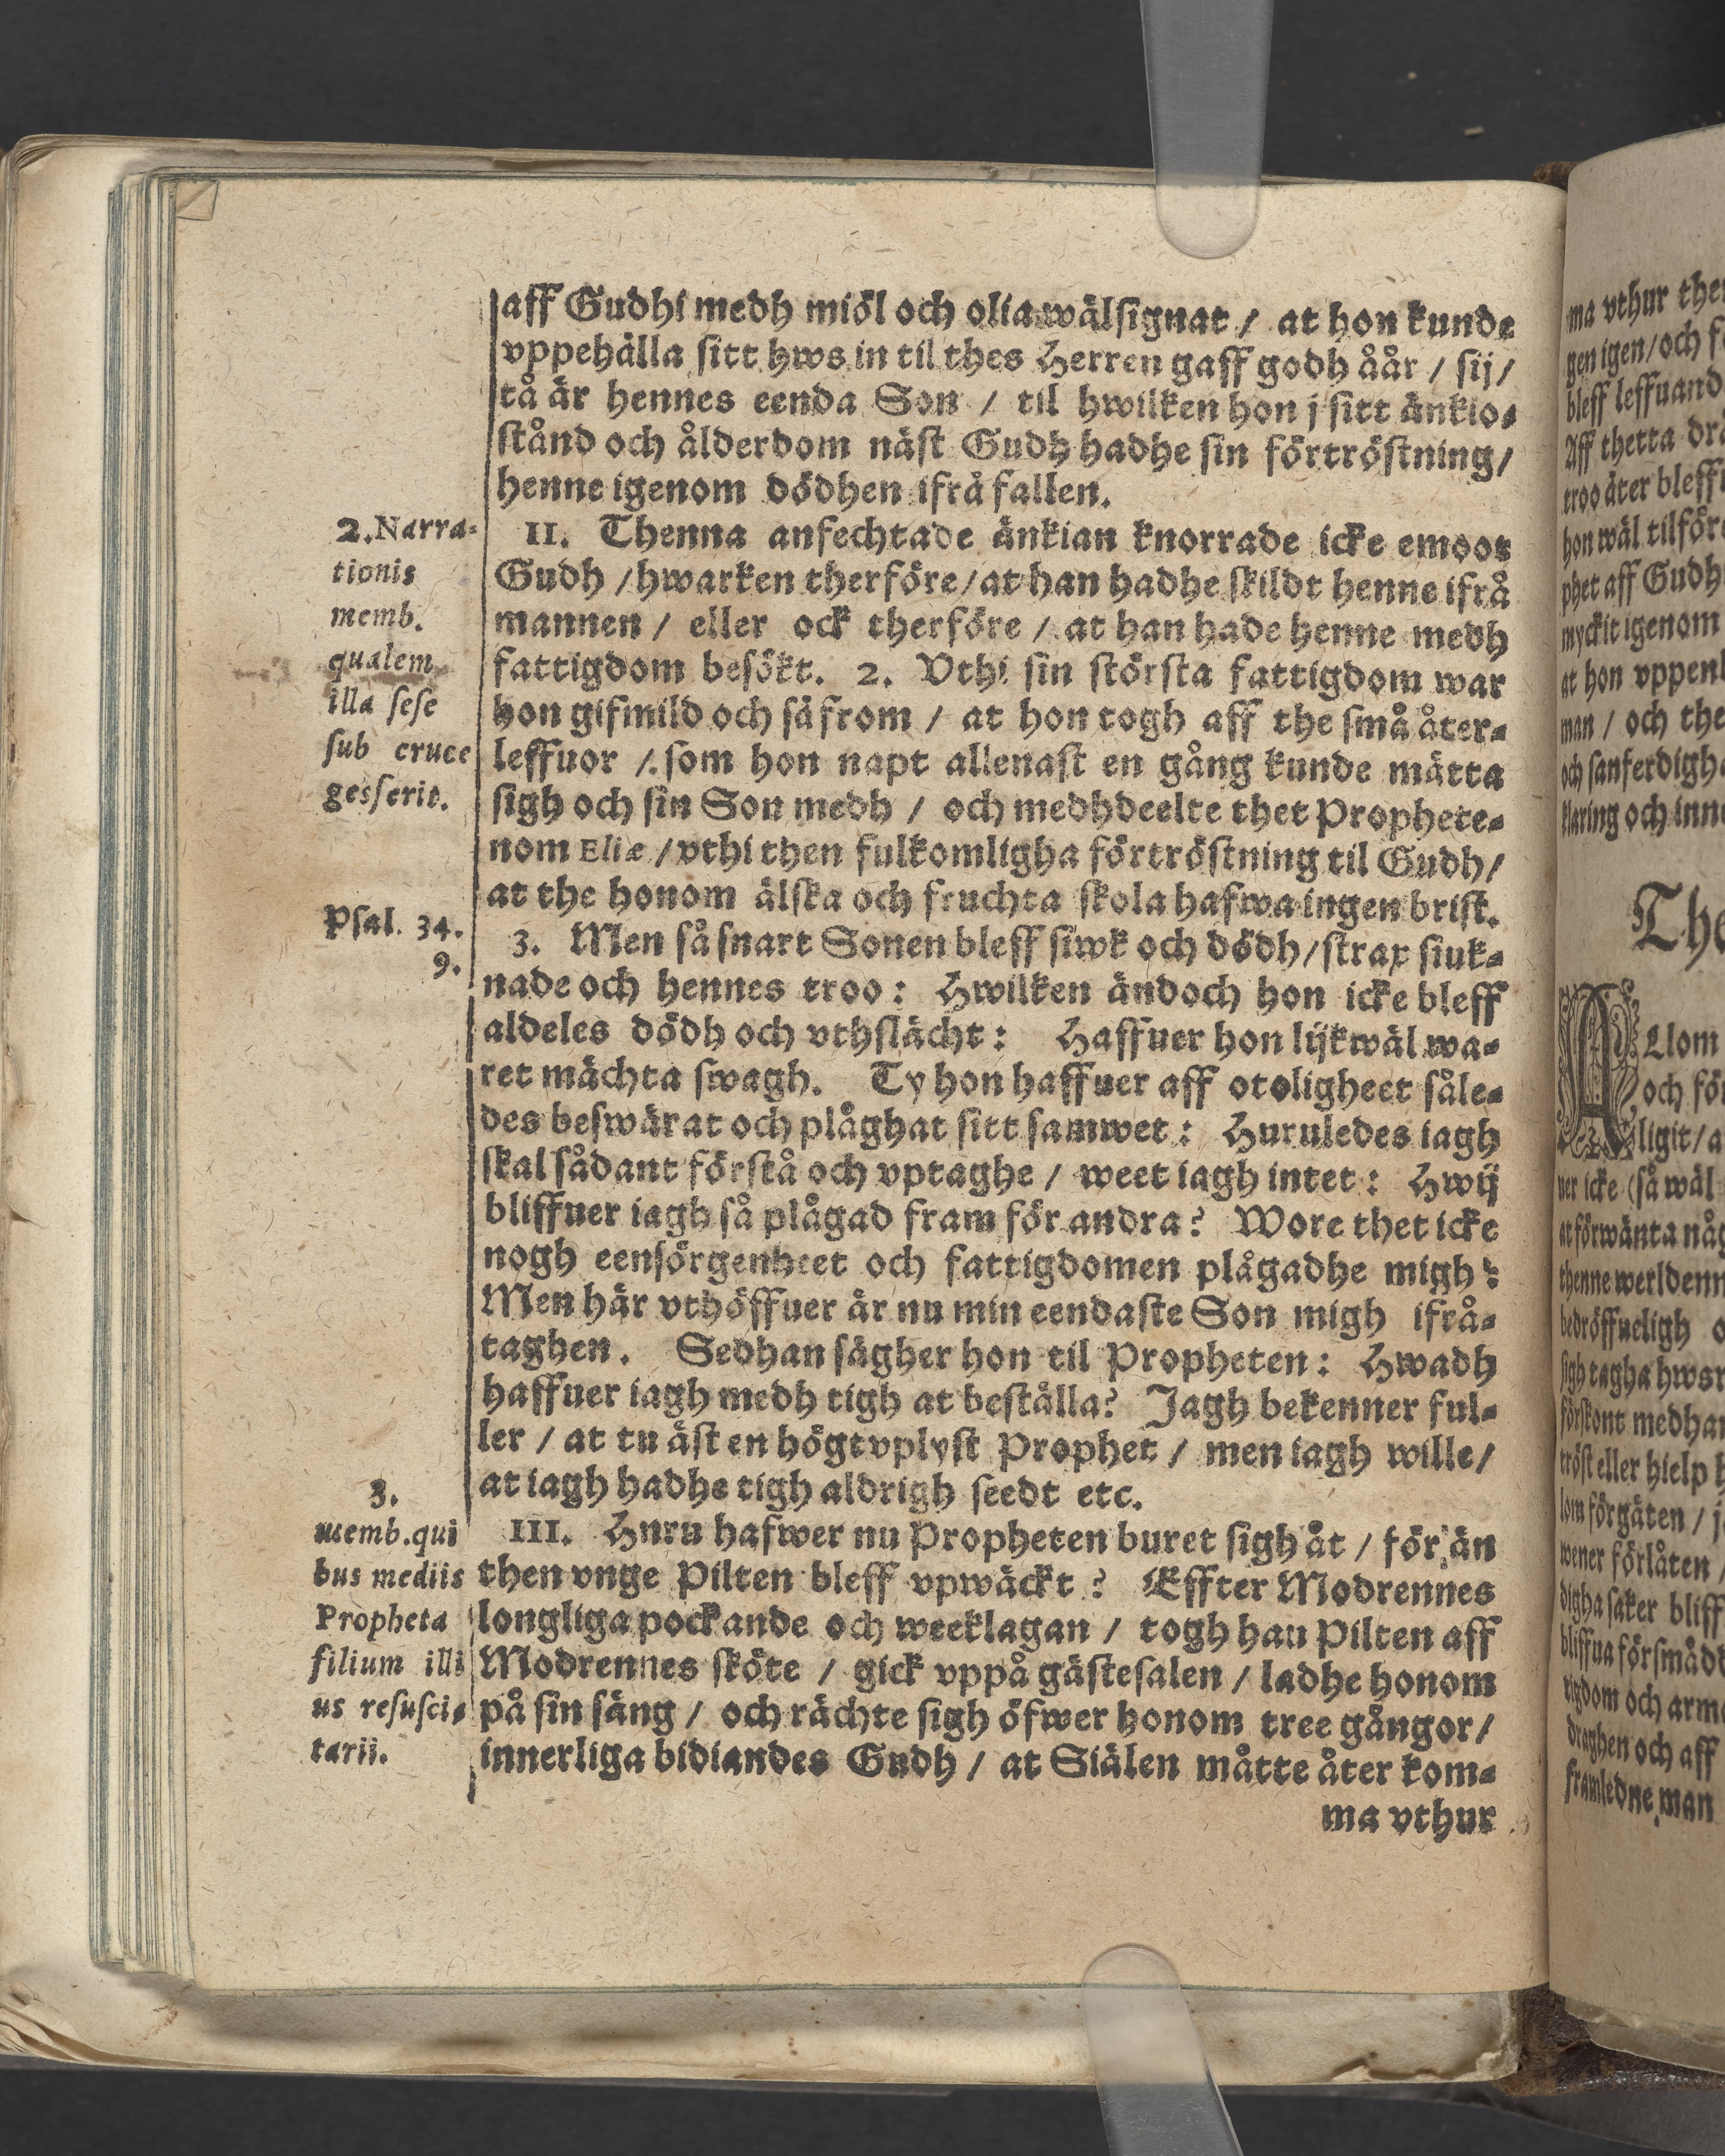 aff Gudhi medh miöl och olia wälsignat / at hon kunde
vppehälla sitt hws in til thes Herren gaff godh åår / sij /
tå är hennes eenda Son / til hwilken hon j sitt änkio⸗
stånd och ålderdom näst Gudh hadhe sin förtröstning /
henne igenom dödhen ifrå fallen.
2. Narra⸗
tionis
memb.
qualem
illa sese
sub cruce
gesserit.
II. Thenna anfechtade änkian knorrade icke emoot
Gudh / hwarken therföre / at han hadhe skildt henne ifrå
mannen / eller ock therföre / at han hade henne medh
fattigdom besökt. 2. Vthi sin största fattigdom war
hon gifmild och så from / at hon togh aff the små åter⸗
leffuor / som hon napt allenast en gång kunde mätta
sigh och sin Son medh / och medhdeelte thet Prophete⸗
nom Eliæ / vthi then fulkomligha förtröstning til Gudh /
at the honom älska och fruchta skola hafwa ingen brist.
Psal. 34.
9.
3. Men så snart Sonen bleff siwk och dödh / strax siuk⸗
nade och hennes troo : Hwilken ändoch hon icke bleff
aldeles dödh och vthslächt : Haffuer hon lijkwäl wa⸗
ret mächta swagh. Ty hon haffuer aff otoligheet såle⸗
des beswärat och plåghat sitt samwet : Huruledes iagh
skal sådant förstå och vptaghe / weet iagh intet : Hwij
bliffuer iagh så plågad fram för andra ? Wore thet icke
nogh eensörgenheet och fattigdomen plågadhe migh :
Men här vthöffuer är nu min eendaste Son migh ifrå⸗
taghen. Sedhan sägher hon til Propheten : Hwadh
haffuer iagh medh tigh at beställa ? Jagh bekenner ful⸗
ler / at tu äst en högt vplyst Prophet / men iagh wille /
at iagh hadhe tigh aldrigh seedt etc.
3.
memb. qui
bus mediis
Propheta
filium illi
us resusci⸗
tarii.
III. Huru hafwer nu Propheten buret sigh åt / för än
then vnge Pilten bleff vpwäckt ? Effter Modrennes
longliga pockande och weeklagan / togh han Pilten aff
Modrennes sköte / gick vppå gästesalen / ladhe honom
på sin säng / och rächte sigh öfwer honom tree gångor /
innerliga bidiandes Gudh / at Siälen måtte åter kom⸗
ma vthur
ma vthur
gen igen / och
bleff
Aff thetta
troo åter
hon wäl
phet aff Gudh
myckit igenom
at hon
man / och
och
klaring och
Allom
och
ligit /
uer icke (så wäl
at förwänta
thenne
bedröffueligh
sigh tagha
förskont
tröst eller hielp
lom förgäten /
wener förlåten /
digha saker
bliffua
rigdom och
draghen och aff
framledne man